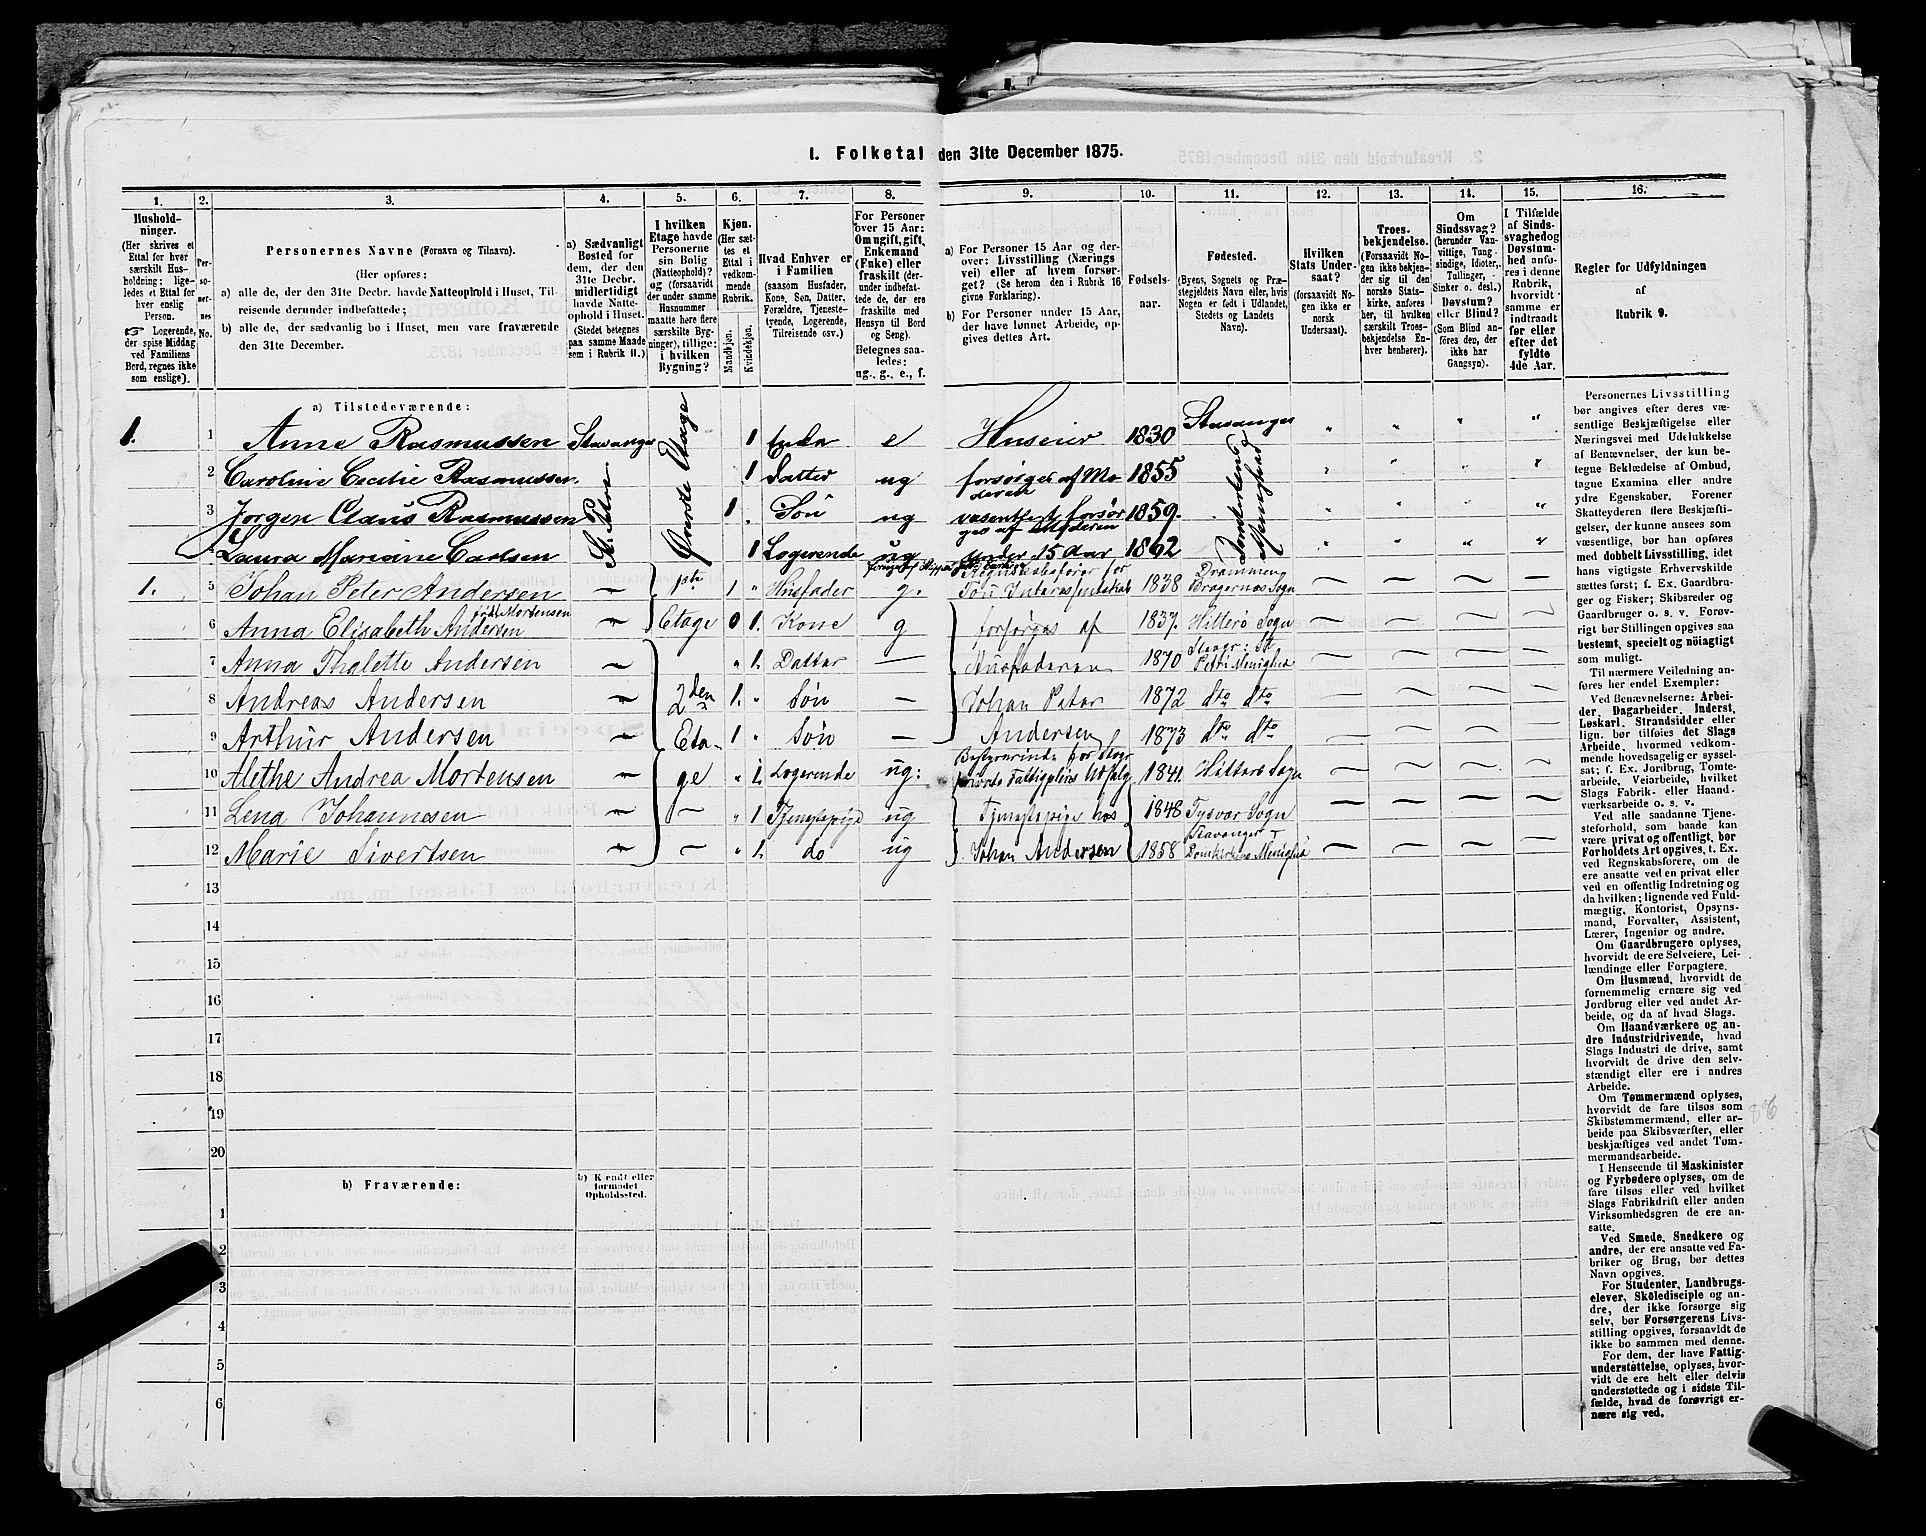 1. Folketal den 31te December 1875.
1. 2. 3. 4. 5. 6. 7. 8. 9. 10. 11. 12. 13. 14. 15. 16.
Husholdninger.
(Her skrives et
Ettal for hver
særskilt Husholdning;
ligeledes et Ettal for
hver enslig
Person.
☞ Logerende,
der spise Middag
ved Familiens
Bord, regnes ikke
som enslige.)
Personernes No.
Personernes Navne (Fornavn og Tilnavn).
(Her opføres:
a) alle de, der den 31te Decbr. havde Natteophold i Huset, Tilreisende derunder indbefattede;
b) alle de, der sædvanlig bo i Huset, men vare fraværende
den 31te December.
a) Sædvanligt
Bosted for
dem, der den
31te Decbr.
midlertidigt
havde Natteophold i Huset.
(Stedet betegnes
paa samme Maade
som i Rubrik 11.)
I hvilken
Etage havde
Personerne
sin Bolig
(Natteophold)?
og (forsaavidt
der under samme
Husnummer
maatte høre flere
særskilte Bygninger), tillige:
i hvilken
Bygning?
Kjøn.
(Her sættes et
Ettal i
vedkommende
Rubrik.
Mandkjøn. Kvindekjøn.
Hvad Enhver er
i Familien
(saasom Husfader,
Kone, Søn, Datter,
Forældre, Tjenestetyende, Logerende,
Tilreisende osv.)
For Personer
over 15 Aar:
Om ugift, gift,
Enkemand
(Enke) eller
fraskilt (derunder indbefattede de, der ere
fraskilte med
Hensyn til Bord
og Seng).
Betegnes saaledes:
ug., g., e., f.
a) For Personer 15 Aar og derover: Livsstilling (Næringsvei) eller af hvem forsørget? (Se herom den i Rubrik 16
givne Forklaring).
b) For Personer under 15 Aar,
der have lønnet Arbeide, opgives dettes Art.
Fødselsaar.
Fødested.
(Byens, Sognets og Præstegjeldets Navn eller, hvis
Nogen er født i Udlandet,
Stedets og Landets
Navn).
Hvilken
Stats Undersaat?
(forsaavidt Nogen ikke er
norsk
Undersaat).
Troesbekjendelse.
(Forsaavidt Nogen ikke bekjender sig til den
norske Statskirke, anføres
her, til hvilken
særskilt Troesbekjendelse Enhver henhører).
Om
Sindssvag?
(herunder Vanvittige, Tungsindige, Idioter,
Tullinger,
Sinker o. desl.)
Døvstum?
eller Blind?
(Som Blind anføres den, der
ikke har
Gangsyn).
I Tilfælde
af Sindssvaghed og
Døvstumhed anføres i denne
Rubrik,
hvorvidt
samme er
indtraadt
før eller
efter det
fyldte
4de Aar.
Regler for Udfyldningen
af
Rubrik 9.
a) Tilstedeværende:
1. 1 Anne Rasmussen Stavanger 1 Enke e Huseier 1830 Stavanger " " " "
St. Petri Øverste Etage
2 Caroline Cecilie Rasmussen 1 Datter ug forsørges af Moderen 1855 " " " "
3 Jørgen Claus Rasmussen 1 Søn ug væsentligst forsørges af Moderen 1859. " " " "
4 Laura Mariane Carlsen 1 Logerende ug under 15 Aar 1862 " " " "
Menighed
1. 5 Johan Peter Andersen 1ste 1 " Husfader g. Regnskabsfører for Tou Interessentskab 1838 Drammen Bragernes Sogn
6 Anna Elisabeth Andersen født Mortensen Etage 0 1. Kone g forsørges af 1837. Hitterø Sogn
7 Anna Thalette Andersen " 1. Datter — Husfaderen 1870 Stavgr: St. Petri Menighed
8 Andreas Andersen 2den 1. " Søn — Johan Peter 1872 dto dto
9 Arthur Andersen Eta- 1 " Søn — Andersen 1873 dto dto
10 Alethe Andrea Mortensen ge " 1. Logerende ug: Bestyrerinde for Udsalg 1841. Hitterø Sogn
11 Lena Johannesen " 1 Tjenestepige ug Tjenestepige hos 1848 Tysvær Sogn
12 Marie Sivertsen " 1. do ug Johan Andersen 1858 Stavanger Domkirkens Menighed
13
14
15
16
17
18
19
20
b) Fraværende:
b) Kjendt eller
formodet
Opholdssted.
1
2
3
4
5
6
Personernes Livsstilling
bør angives efter deres væsentlige Beskjæftigelse eller
Næringsvei med Udelukkelse
af Benævnelser, der kun betegne Beklædelse af Ombud,
tagne Examina eller andre
ydre Egenskaber. Forener
Skatteyderen flere Beskjæftigelser, der kunne ansees som
væsentlige, bør han opføres
med dobbelt Livsstilling, idet
hans vigtigste Erhvervskilde
sættes først; f. Ex. Gaardbruger og Fisker; Skibsreder og
Gaardbruger o. s. v. Forøvrigt bør Stillingen opgives saa
bestemt, specielt og nøiagtigt
som muligt.
Til nærmere Veiledning anføres her endel Exempler:
Ved Benævnelserne: Arbeider, Dagarbeider, Inderst,
Løskarl, Strandsidder eller
lign. bør tilføies det Slags
Arbeide, hvormed vedkommende hovedsagelig er sysselsat; f. Ex. Jordbrug, Tomtearbeide, Veiarbeide, hvilket
Slags Fabrik- eller Haandværksarbeide o. s. v.
Ved alle saadanne Tjenesteforhold, som baade kan
være privat og offentligt, bør
Forholdets Art opgives, t. Ex.
ved Regnskabsførere, om de
ere ansatte ved en privat eller
ved en offentlig Indretning og
da hvilken; lignende ved Fuldmægtig, Kontorist, Opsynsmand, Forvalter, Assistent,
Lærer, Ingeniør og andre.
Om Gaardbrugere oplyses,
hvorvidt de ere Selveiere, Leilændinge eller Forpagtere.
Om Husmænd, hvorvidt de
fornemmelig ernære sig ved
Jordbrug eller ved andet Arbeide, og da af hvad Slags.
Om Haandværkere og andre Industridrivende, hvad
Slags Industri de drive, samt
hvorvidt de drive den selvstændigt eller ere i andres
Arbeide.
Om Tømmermænd oplyses,
hvorvidt de fare tilsøs som
Skibstømmermænd, eller arbeide paa Skibsværfter, eller
beskjæftiges ved andet Tømmermandsarbeide.
I Henseende til Maskinister
og Fyrbødere oplyses, om de
fare tilsøs eller ved hvilket
Slags Fabrikdrift eller anden
Virksomhedsgren de ere ansatte.
Ved Smede, Snedkere og
andre, der ere ansatte ved Fabriker og Brug, bør dettes
Navn opgives.
For Studenter, Landbrugselever, Skoledisciple og andre, der ikke forsørge sig
selv, bør Forsørgerens Livsstilling opgives, forsaavidt de
ikke bo sammen med denne.
For dem, der have Fattigunderstøttelse, oplyses, hvorvidt de ere helt eller delvis
understøttede og i sidste Tilfælde, hvad de forøvrigt ernære sig ved.